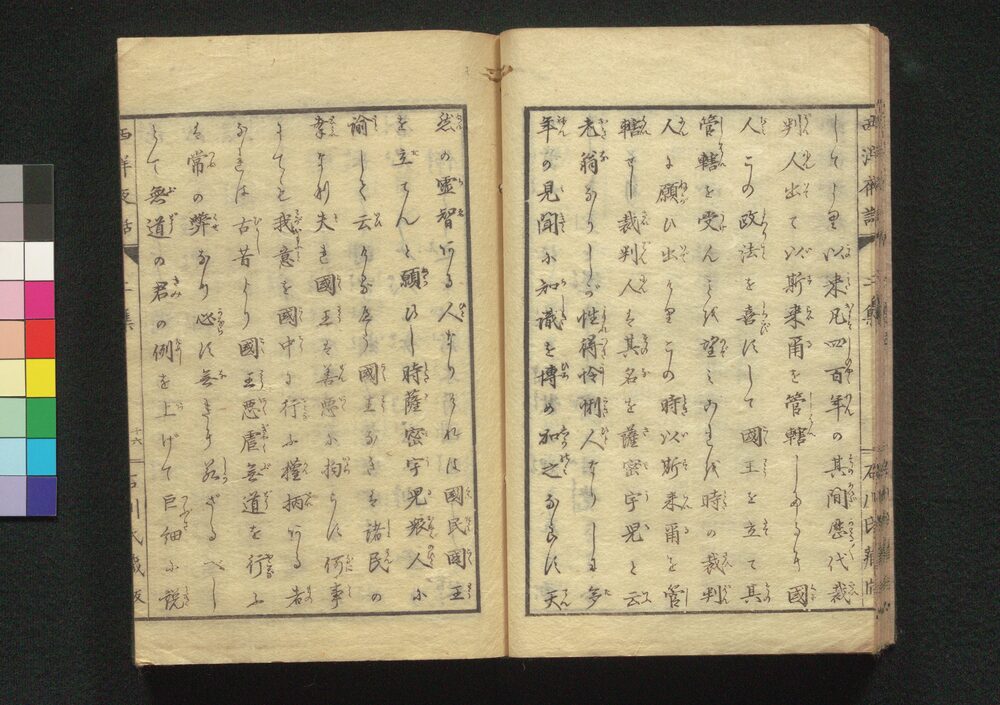 してより以来凡四百年の其間歴代裁
判人出て以斯来爾を管轄しめたり國
人この政法を喜ばずして國王を立て其
管轄を受んことを望みのれば時の裁判
人に願ひ出たり里この時以斯来爾を管
轄せし裁判人を其名を薩密宇児と云
老翁なりしが性得怜悧人なりしは多
年の見聞に知識を博め加之ならず天
然の霊智ある人なりされば國民國王
を立ちんと願ひし時薩密宇児衆人に
諭して云けるやう國王なきを諸民の
幸なり夫れ國王を善悪に拘らず何事
によても我意を國中に行ふ權柄ある者
なれば古昔より國王悪虐無道を行ふ
は常の弊なり必ず無きり若ざるべし
とて無道の君の例を上げて巨細に説
西洋夜話
二集
十六
石川氏蔵版